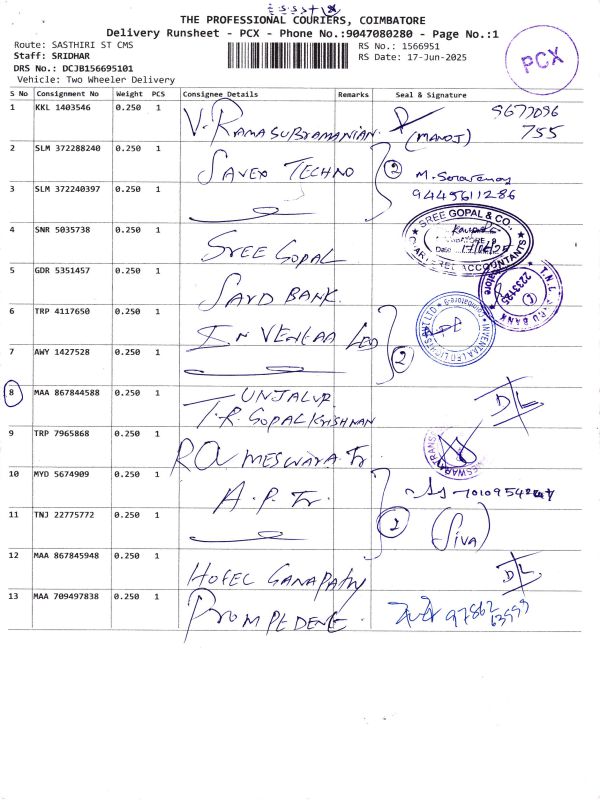 THE PROFESSIONAL COURIERS, COIMBATORE
Delivery Runsheet - PCX - Phone No.:9047080280 - Page No.:1
Route: SASTHIRI ST CMS
RS No.: 1566951
Staff: SRIDHAR
RS Date: 17-Jun-2025
DRS No.: DCJB156695101
Vehicle: Two Wheeler Delivery
PCX
S No Consignment No Weight PCS Consignee_Details Remarks Seal & Signature
1 KKL 1403546 0.250 1 V. RAMASUBRAMANIAN (MANOJ) 755
2 SLM 372288240 0.250 1 SAVEX TECHNO 2
3 SLM 372240397 0.250 1 9445611286
4 SNR 5035738 0.250 1 SREE GOPAL
SREE GOPAL & CO.,
CHARTERED ACCOUNTANTS
Date
5 GDR 5351457 0.250 1 SAYD BANK
2233125
6 TRP 4117650 0.250 1 INVENTAA LED 2
7 AWY 1427528 0.250 1
8 MAA 867844588 0.250 1 UNJALUR
T.R. GOPALKRISHNAN D/L
9 TRP 7965868 0.250 1 RAMESWARA Tr
10 MYD 5674909 0.250 1 A.P. Tr. 2
11 TNJ 22775772 0.250 1 (SIVA)
12 MAA 867845948 0.250 1 HOTEL GANAPATHY D/L
13 MAA 709497838 0.250 1 PROMPEDENE 97862
63999